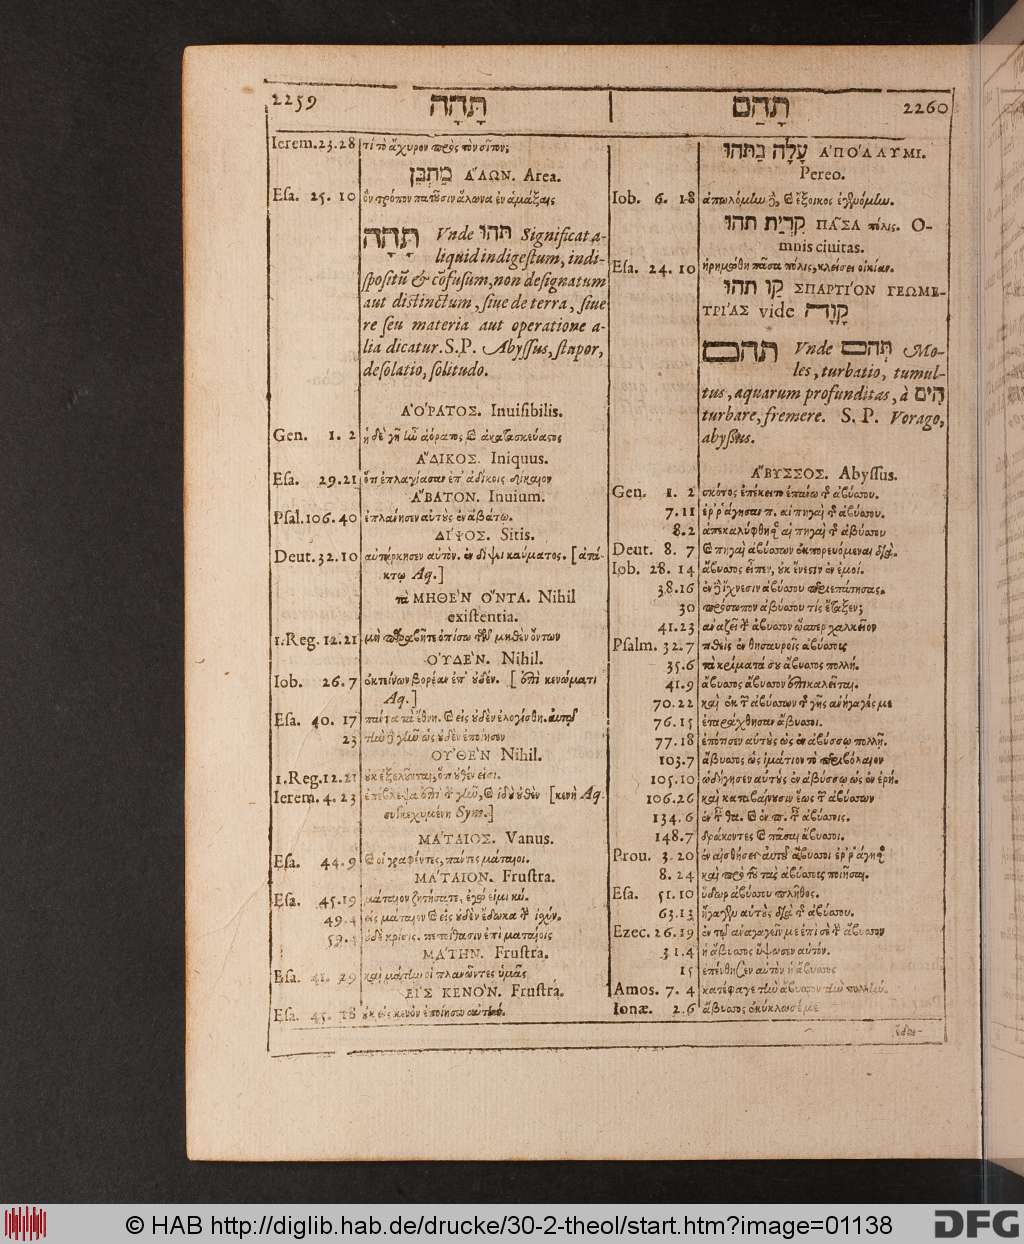 2259 תָּהָה
תָּהַם 2260
Ierem.23.28 τί τὸ ἄχυρον πρὸς τὸν σῖτον;
מַתְבֵּן ἍΛΩΝ. Area.
Esa. 25. 10 ὃν τρόπον πατοῦσιν ἅλωνα ἐν ἁμάξαις
תָּהָה Vnde תהו Significat a-
liquid indigestum, indi-
spositũ & cõfusum, non designatum
aut distinctum, siue de terra, siue
re seu materia aut operatione a-
lia dicatur. S.P. Abyssus, stupor,
desolatio, solitudo.
ἈΌΡΑΤΟΣ. Inuisibilis.
Gen. 1. 2 ἡ δὲ γῆ ἦν ἀόρατος καὶ ἀκατασκεύαστος
ἌΔΙΚΟΣ. Iniquus.
Esa. 29.21 ἐπ' ἀδίκοις δίκαιον
ἌΒΑΤΟΝ. Inuium.
Psal.106.40 ἐπλάνησεν αὐτοὺς ἐν ἀβάτῳ.
ΔΊΨΟΣ. Sitis.
Deut.32.10 αὐτάρκησεν αὐτὸν. ἐν δίψει καύματος. [ἀτά-
κτῳ Aq.]
τὰ ΜΗΘῈΝ ὌΝΤΑ. Nihil
existentia.
1.Reg.12.21 μὴ παραβῆτε ὀπίσω τῶν μηθὲν ὄντων
ΟΥ̓ΔΈΝ. Nihil.
Iob. 26.7 ἐκτείνων βορέαν ἐπ' οὐδέν. [ἐπὶ κενώματι
Aq.]
Esa. 40. 17 πάντα τὰ ἔθνη. καὶ εἰς οὐδὲν ἐλογίσθη. αὐτῷ
23 τὴν γῆν ὡς οὐδὲν ἐποίησεν
ΟΥ̓ΘΈΝ Nihil.
1.Reg.12.21
Ierem. 4. 23 ἐπέβλεψα ἐπὶ τὴν γῆν, καὶ ἰδοὺ οὐθὲν [κενὴ Aq.
συγκεχυμένη Sym.]
ΜΆΤΑΙΟΣ. Vanus.
Esa. 44.9 καὶ οἱ γράφοντες, πάντες μάταιοι.
ΜΆΤΑΙΟΝ. Frustra.
Esa. 45.19 μάταιον ζητήσατε, ἐγώ εἰμι κύ.
49.4 εἰς μάταιον καὶ εἰς οὐδὲν ἔδωκα τὴν ἰσχύν.
59.4 οὐδὲ κρίσις. πεποίθασιν ἐπὶ ματαίοις
ΜΆΤΗΝ. Frustra.
Esa. 41. 29 καὶ μάτην οἱ πλανῶντες ὑμᾶς
ΕἸΣ ΚΕΝΌΝ. Frustra.
Esa. 45. 18 οὐκ εἰς κενὸν ἐποίησεν αὐτήν.
עָלָה בַתֹּהוּ ἈΠΌΛΛΥΜΙ.
Pereo.
Iob. 6. 18 ἀπωλόμην δέ, καὶ ἔξοικος ἐγενόμην.
קִרְיַת תהו ΠΑ͂ΣΑ πόλις. O-
mnis ciuitas.
Esa. 24. 10 ἠρημώθη πᾶσα πόλις, κλείσει οἰκίαν.
קַו תהו ΣΠΑΡΤΊΟΝ ΓΕΩΜΕ-
ΤΡΊΑΣ vide קָוָה
תהם Vnde תְּהֹם Mo-
les, turbatio, tumul-
tus, aquarum profunditas, à הִים
turbare, fremere. S. P. Vorago,
abyssus.
ἌΒΥΣΣΟΣ. Abyssus.
Gen. 1. 2 σκότος ἐπέκειτο ἐπάνω τῆς ἀβύσσου.
7.11 ἐρράγησαν π. αἱ πηγαὶ τῆς ἀβύσσου.
8.2 ἀπεκαλύφθησαν αἱ πηγαὶ τῆς ἀβύσσου
Deut. 8. 7 καὶ πηγαὶ ἀβύσσων ἐκπορευόμεναι διὰ.
Iob. 28. 14 ἄβυσσος εἶπεν, οὐκ ἔνεστιν ἐν ἐμοί.
38.16 ἐν δὲ ἴχνεσιν ἀβύσσου περιεπάτησας.
30 πρόσωπον ἀβύσσου τίς ἔταξεν;
41.23 ἀναζεῖ τὴν ἄβυσσον ὥσπερ χαλκεῖον
Psalm. 32.7 τιθεὶς ἐν θησαυροῖς ἀβύσσους
35.6 τὰ κρίματά σου ἄβυσσος πολλή.
41.9 ἄβυσσος ἄβυσσον ἐπικαλεῖται.
70.22 καὶ ἐκ τῶν ἀβύσσων τῆς γῆς ἀνήγαγές με
76.15 ἐταράχθησαν ἄβυσσοι.
77.18 ἐπότισεν αὐτοὺς ὡς ἐν ἀβύσσῳ πολλῇ.
103.7 ἄβυσσος ὡς ἱμάτιον τὸ περιβόλαιον
105.10 ὡδήγησεν αὐτοὺς ἐν ἀβύσσῳ ὡς ἐν ἐρή.
106.26 καὶ καταβαίνουσιν ἕως τῶν ἀβύσσων
134.6 ἐν τῇ θα. καὶ ἐν π. ταῖς ἀβύσσοις.
148.7 δράκοντες καὶ πᾶσαι ἄβυσσοι.
Prou. 3. 20 ἐν αἰσθήσει αὐτοῦ ἄβυσσοι ἐρράγησαν
8. 24 καὶ πρὸ τοῦ τὰς ἀβύσσους ποιῆσαι.
Esa. 51.10 ὕδωρ ἀβύσσου πλῆθος.
63.13 ἤγαγεν αὐτοὺς διὰ τῆς ἀβύσσου.
Ezec.26.19 ἐν τῷ ἀναγαγεῖν με ἐπὶ σὲ τὴν ἄβυσσον
31.4 ἡ ἄβυσσος ὕψωσεν αὐτόν.
15 ἐπένθησεν αὐτὸν ἡ ἄβυσσος
Amos. 7. 4 κατέφαγε τὴν ἄβυσσον τὴν πολλήν.
Ionæ. 2.6 ἄβυσσος ἐκύκλωσέ με
© HAB http://diglib.hab.de/drucke/30-2-theol/start.htm?image=01138
DFG